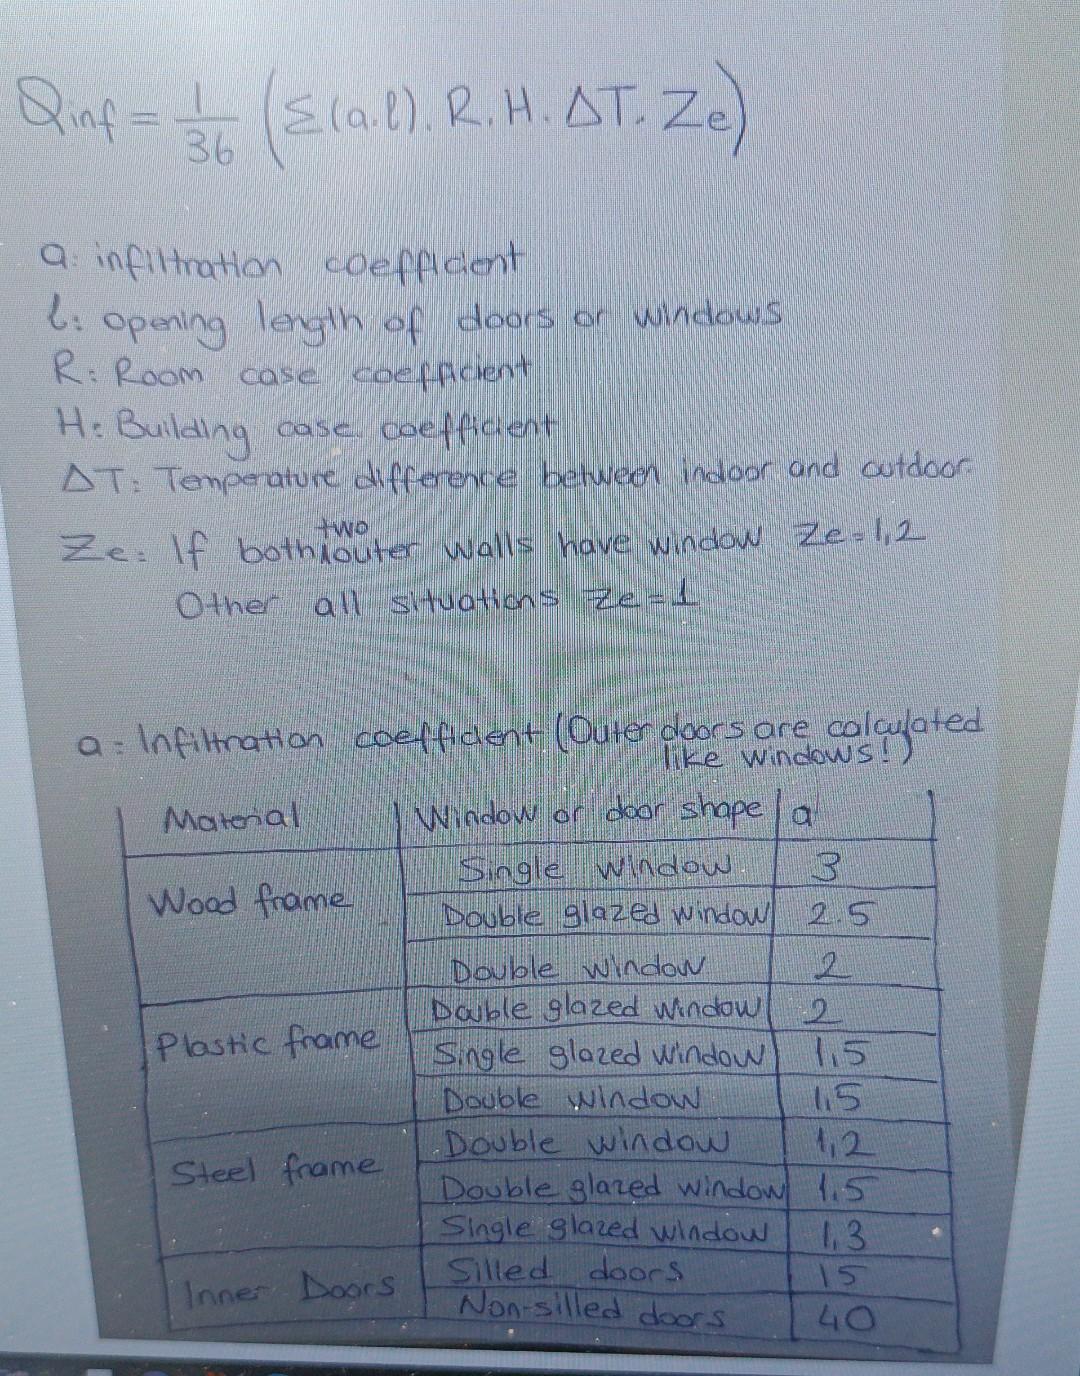 Qinf = 1/36 (Σ(a.l). R. H. ΔT. Ze)
a: infiltration coefficient
l: opening length of doors or windows
R: Room case coefficient
H: Building case coefficient
ΔT: Temperature difference between indoor and outdoor.
Ze: If both two outer walls have window Ze=1,2
Other all situations Ze=1
a: Infiltration coefficient (Outer doors are calculated like windows!)
Material Window or door shape a
Wood frame Single window 3
Double glazed window 2.5
Double window 2
Plastic frame Double glazed window 2
Single glazed window 1,5
Double window 1,5
Steel frame Double window 1,2
Double glazed window 1.5
Single glazed window 1,3
Inner Doors Silled doors 15
Non-silled doors 40